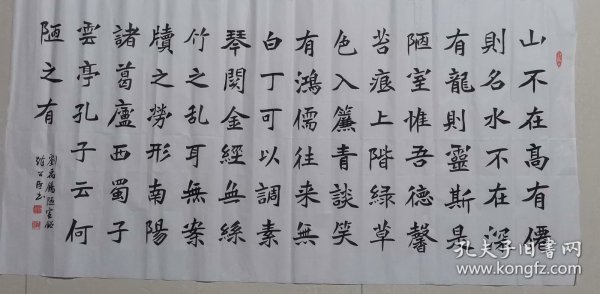 山不在高有僊
則名水不在深
有龍則靈斯是
陋室惟吾德馨
苔痕上階緑草
色入簾青談笑
有鴻儒往来無
白丁可以調素
琴閱金經無絲
竹之乱耳無案
牘之勞形南陽
諸葛廬西蜀子
雲亭孔子云何
陋之有
劉禹錫陋室銘
孔夫子旧书网
www.kongfz.com